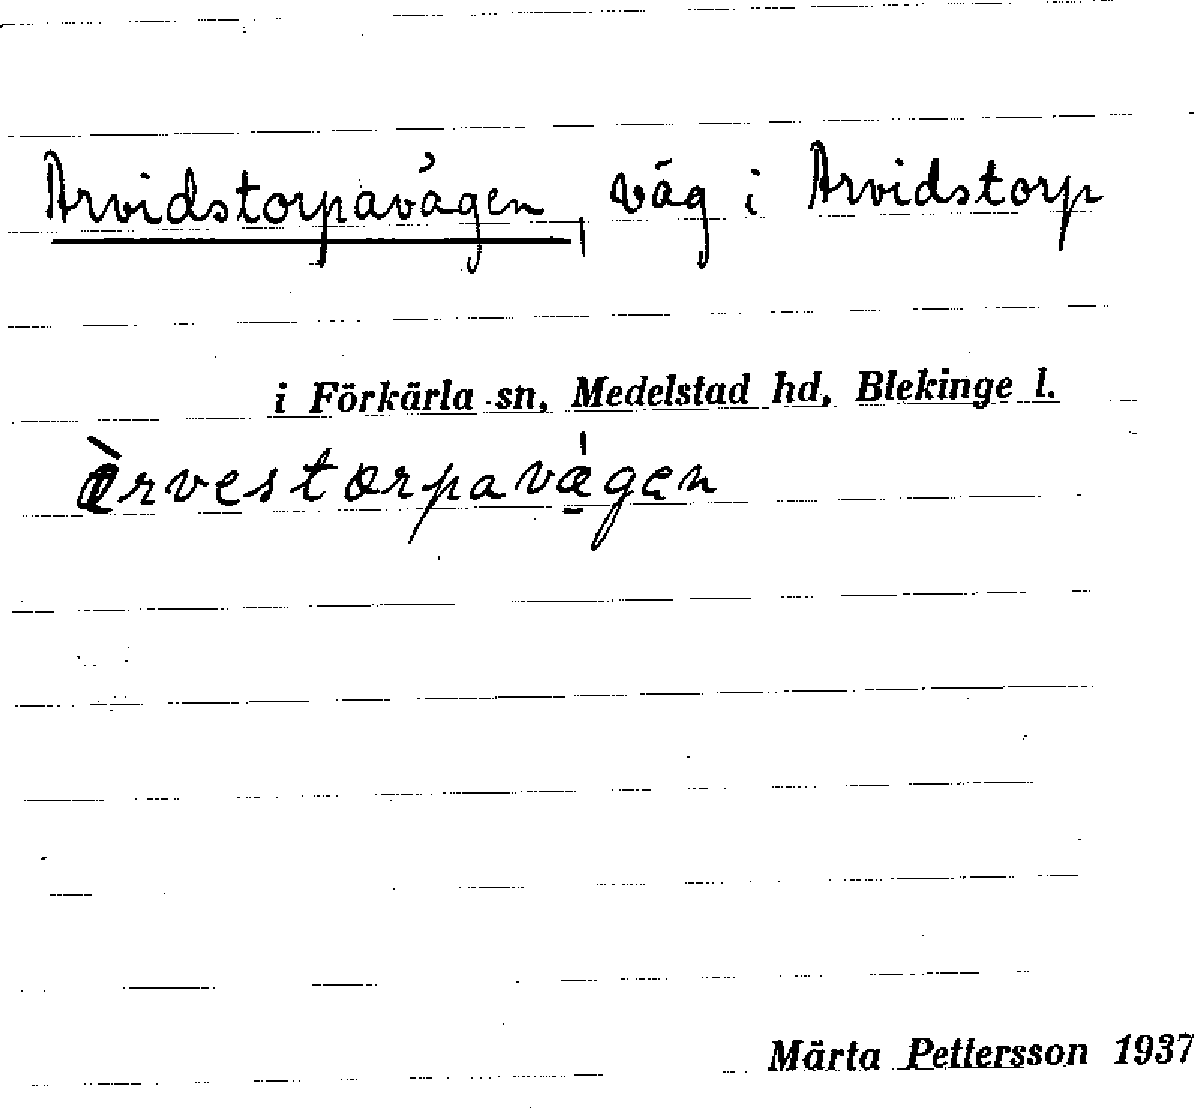 Arvidstorpavägen, väg i Arvidstorp
i Förkärla sn, Medelstad hd, Blekinge l.
àrvestorpavǽgen
Märta Pettersson 1937